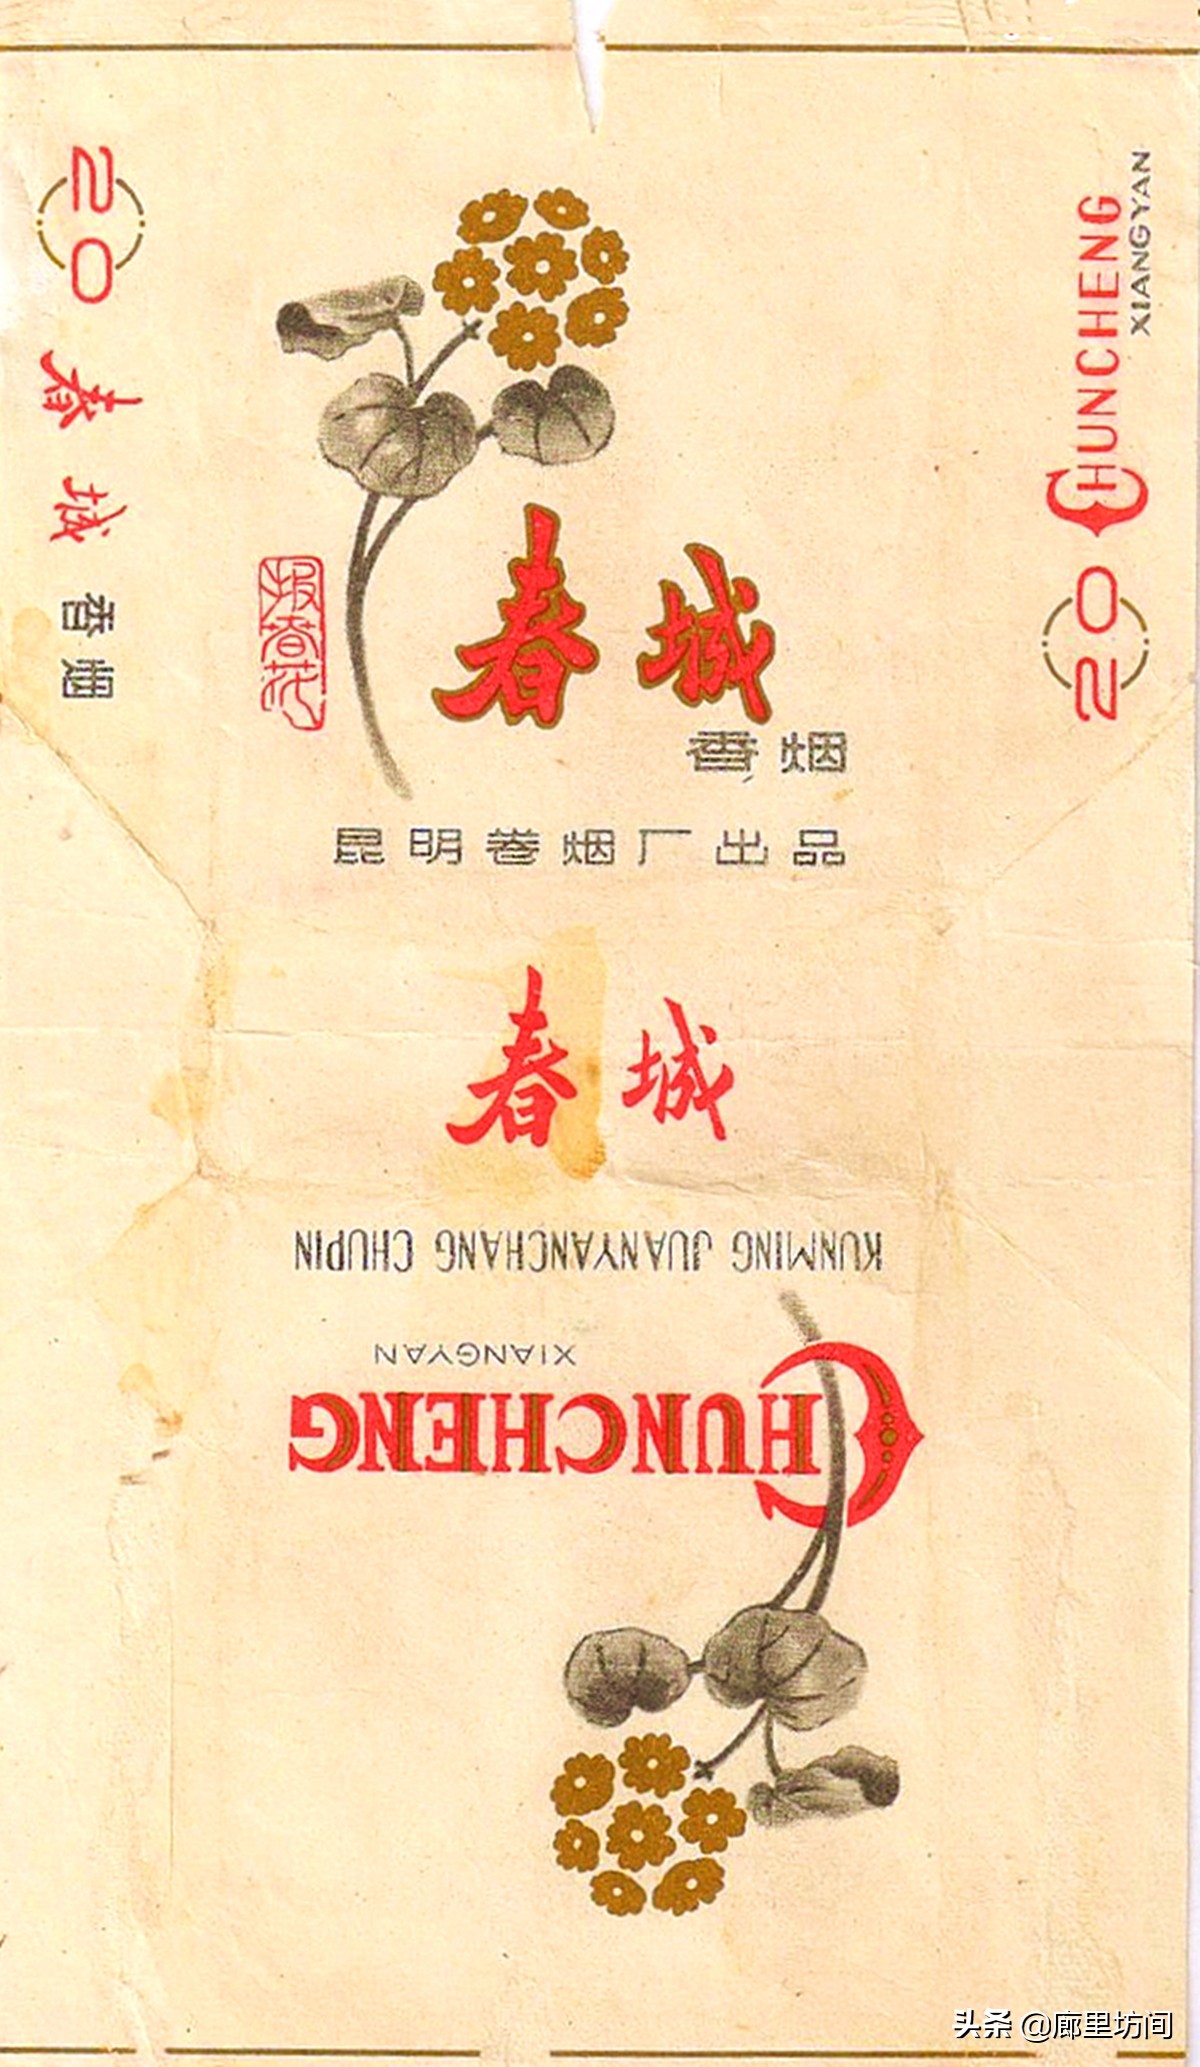 20 春城 香烟
CHUNCHENG
XIANGYAN
20
报春花
春城
香烟
昆明卷烟厂出品
春城
KUNMING JUANYANCHANG CHUPIN
XIANGYAN
CHUNCHENG
头条 @廊里坊间